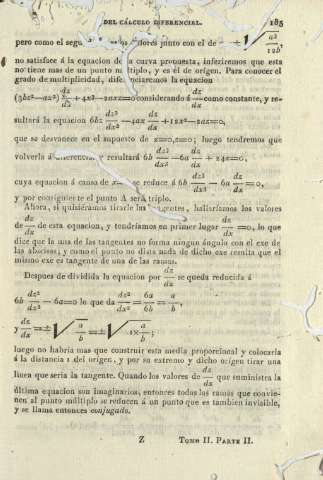 DEL CÁLCULO DIFERENCIAL. 185
pero como el segu dores junto con el de ± √ a³/12b,
no satisface á la equacion de la curva propuesta, inferiremos que esta
no tiene mas de un punto múltiplo, y es él de orígen. Para conocer el
grado de multiplicidad, diferenciaremos la equacion
(3bz²—ax²) dz/dx + 4x³—2axz=0 considerando á dz/dx como constante, y re-
sultará la equacion 6bz dz²/dx² —4ax dz/dx +12x²—2az=0,
que se desvanece en el supuesto de x=0, z=0; luego tendremos que
volverla á diferenciar y resultará 6b dz³/dx³ —6a dz/dx + 24x=0,
cuya equacion á causa de x= se reduce á 6b dz³/dx³ — 6a dz/dx =0,
y por consiguiente el punto A será triplo.
Ahora, si quisiéramos tirarle las tangentes, hallaríamos los valores
de dz/dx de esta equacion, y tendríamos en primer lugar dz/dx =0, lo que
dice que la una de las tangentes no forma ningun ángulo con el exe de
las abscisas; y como el punto no dista nada de dicho exe resulta que el
mismo exe es tangente de una de las ramas.
Despues de dividida la equacion por dz/dx se queda reducida á
6b dz²/dx² —6a=0 lo que da dz²/dx² = 6a/6b = a/b,
y dz/dx =± √ a/b =± √ 1× a/b;
luego no habria mas que construir esta media proporcional y colocarla
á la distancia 1 del orígen, y por su extremo y dicho orígen tirar una
línea que sería la tangente. Quando los valores de dz/dx que suministra la
última equacion son imaginarios, entonces todas las ramas que convie-
nen al punto múltiplo se reducen á un punto que es tambien invisible,
y se llama entonces conjugado.
Z TOMO II. PARTE II.